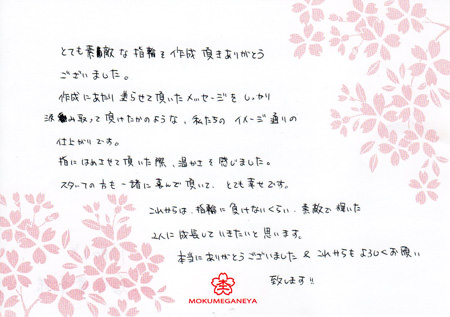 とても素敵な指輪を作成頂きありがとう
ございました。
作成にあたり送らせて頂いたメッセージをしっかり
汲み取って頂けたかのような、私たちのイメージ通りの
仕上がりです。
指にはめさせて頂いた際、温かさを感じました。
スタッフの方も一緒に喜んで頂いて、とても幸せです。
これからは、指輪に負けないくらい、素敵で輝いた
2人に成長していきたいと思います。
本当にありがとうございました & これからもよろしくお願い
致します!!
MOKUMEGANEYA